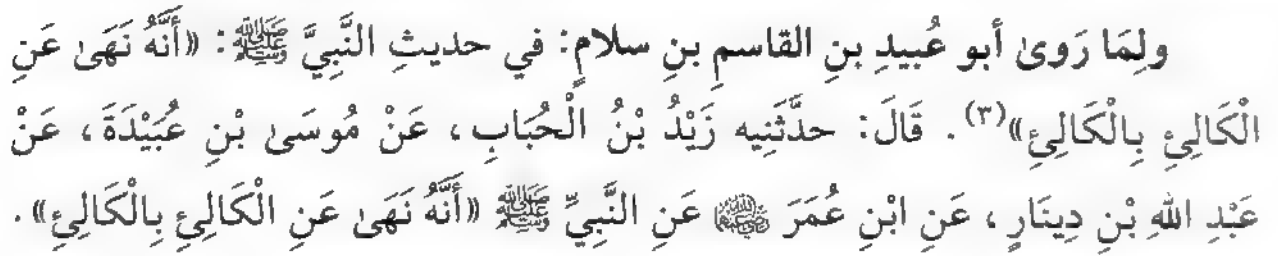 ولِمَا رَوىٰ أبو عُبيدِ بنِ القاسمِ بنِ سلامٍ: في حديثِ النَّبِيَّ ﷺ: «أَنَّهُ نَهَىٰ عَنِ
الْكَالِئِ بِالْكَالِئِ»(٣). قَالَ: حدَّثَنِيه زَيْدُ بْنُ الْحُبَابِ، عَنْ مُوسَىٰ بْنِ عُبَيْدَةَ، عَنْ
عَبْدِ اللهِ بْنِ دِينَارٍ، عَنِ ابْنِ عُمَرَ ﵁ عَنِ النَّبِيِّ ﷺ «أَنَّهُ نَهَىٰ عَنِ الْكَالِئِ بِالْكَالِئِ».